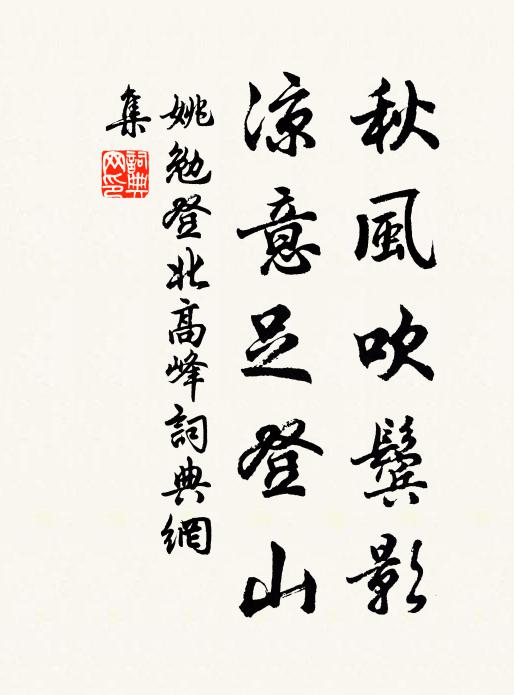 秋風吹鬢影
涼意足登山
姚勉登北高峰詞典網
集
詞典網印